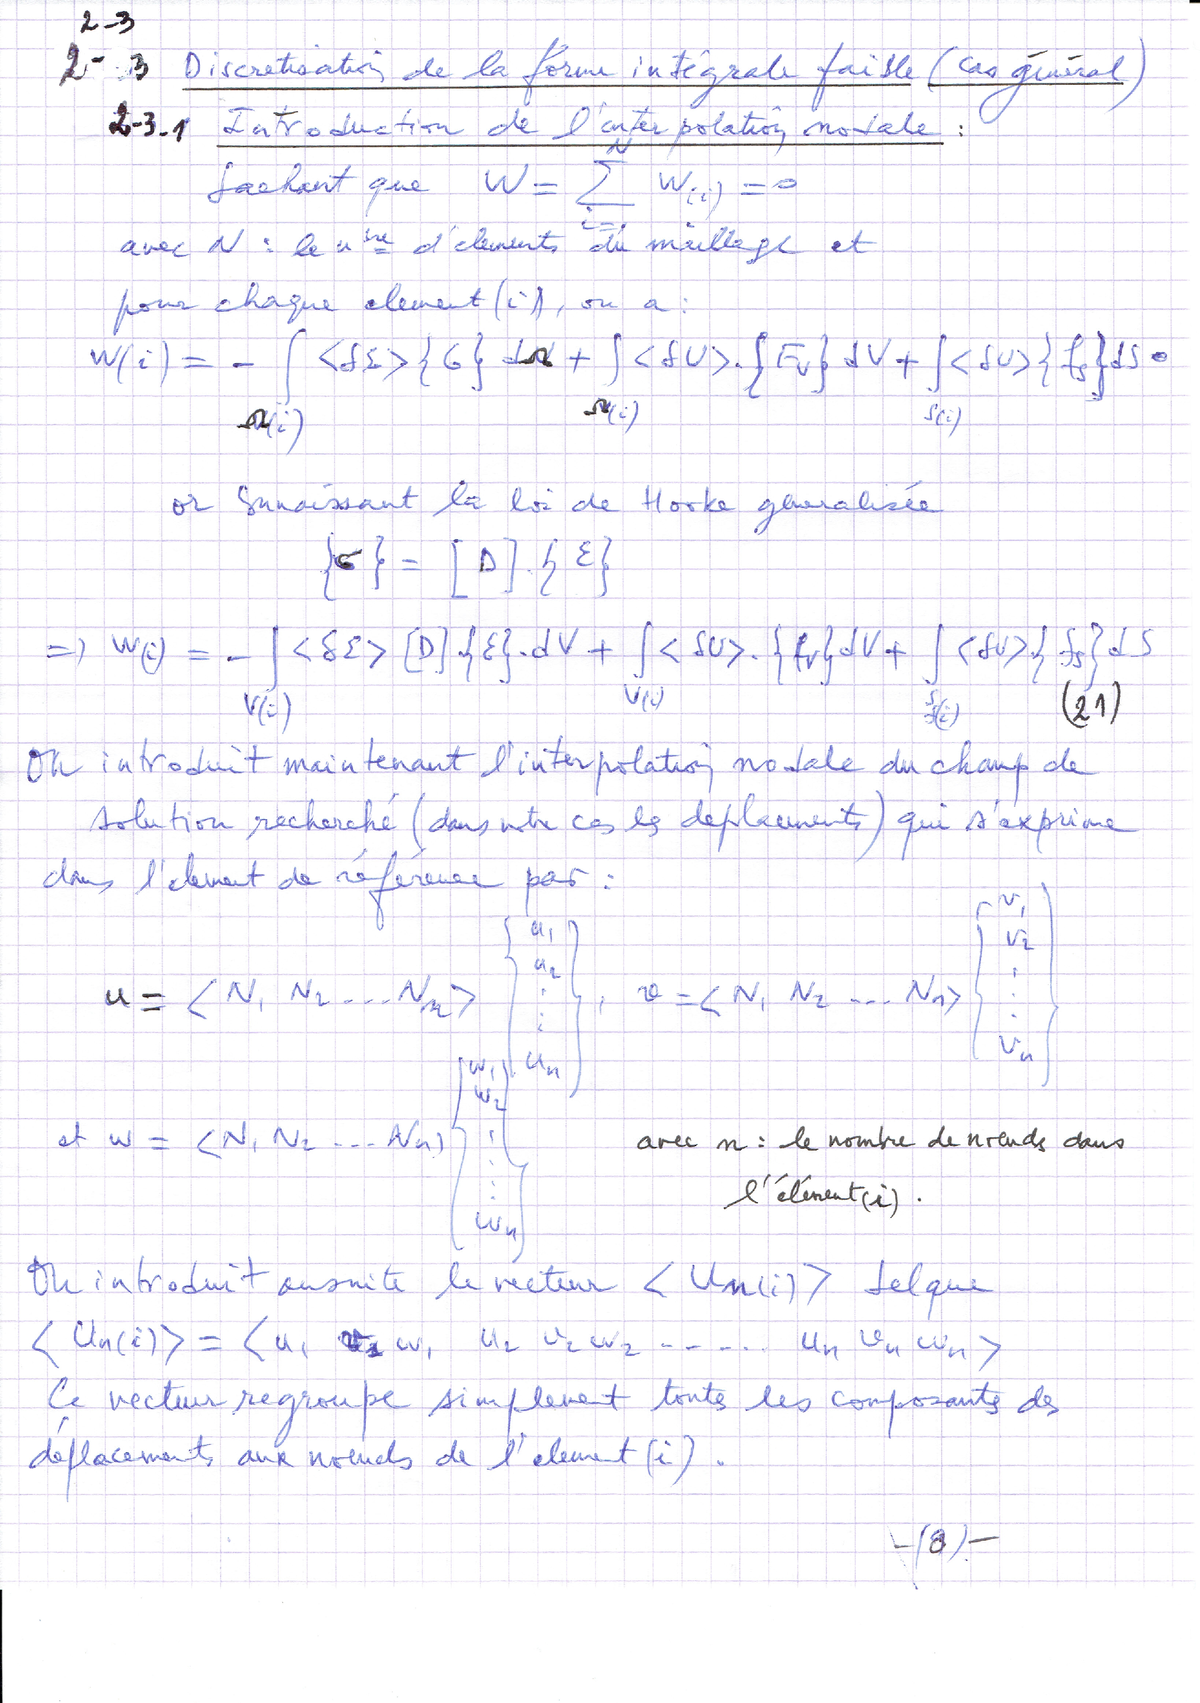 2-3
2-3 Discrétisation de la forme intégrale faible (cas général)
2-3-1 Introduction de l'interpolation nodale :
Sachant que W = ∑_{i=1}^{N} W(i) = 0
avec N : le nbre d'elements du maillage et
pour chaque element (i), on a :
W(i) = - ∫_{V(i)} <δε>{σ} dV + ∫_{V(i)} <δU>.{F_V} dV + ∫_{S(i)} <δU>{f_s} dS
or connaissant la loi de Hooke généralisée
{σ} = [D].{ε}
=> W(i) = - ∫_{V(i)} <δε>[D].{ε}.dV + ∫_{V(i)} <δU>.{f_V} dV + ∫_{S(i)} <δU>.{f_s} dS
(21)
On introduit maintenant l'interpolation nodale du champ de
solution recherché (dans notre cas les deplacements) qui s'exprime
dans l'element de référence par :
u = <N1 N2 ... Nn> {u1 u2 ⋮ un} , v = <N1 N2 ... Nn> {v1 v2 ⋮ vn}
et w = <N1 N2 ... Nn> {w1 w2 ⋮ wn} avec n : le nombre de nœuds dans
l'élément (i).
On introduit ensuite le vecteur <Un(i)> telque
<Un(i)> = <u1 v1 w1 u2 v2 w2 ----... un vn wn>
Ce vecteur regroupe simplement toutes les composants des
déplacements aux nœuds de l'element (i).
-(8)-